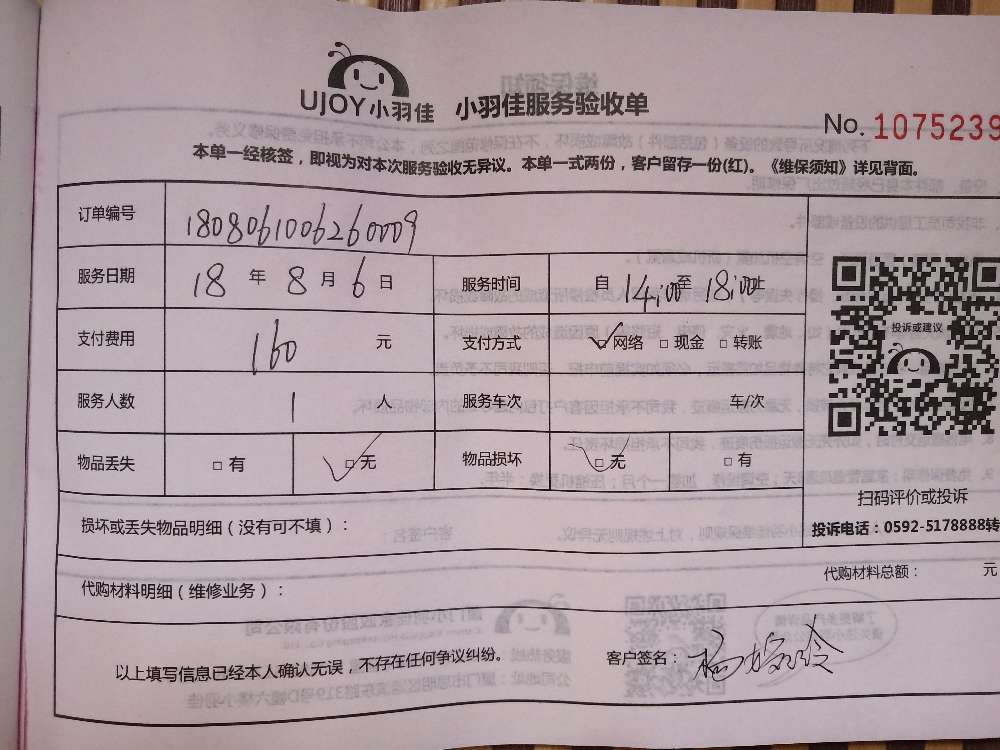 UJOY小羽佳 小羽佳服务验收单
No. 1075239
本单一经核签，即视为对本次服务验收无异议。本单一式两份，客户留存一份(红)。《维保须知》详见背面。
订单编号 1808061006260009
服务日期 18 年 8 月 6 日 服务时间 自 14:00 至 18:00 止
支付费用 160 元 支付方式 ✓网络 □现金 □转账
投诉或建议
服务人数 1 人 服务车次 车/次
物品丢失 □有 ✓□无 物品损坏 ✓□无 □有
扫码评价或投诉
损坏或丢失物品明细（没有可不填）：
投诉电话：0592-5178888转
代购材料明细（维修业务）： 代购材料总额： 元
以上填写信息已经本人确认无误，不存在任何争议纠纷。 客户签名：